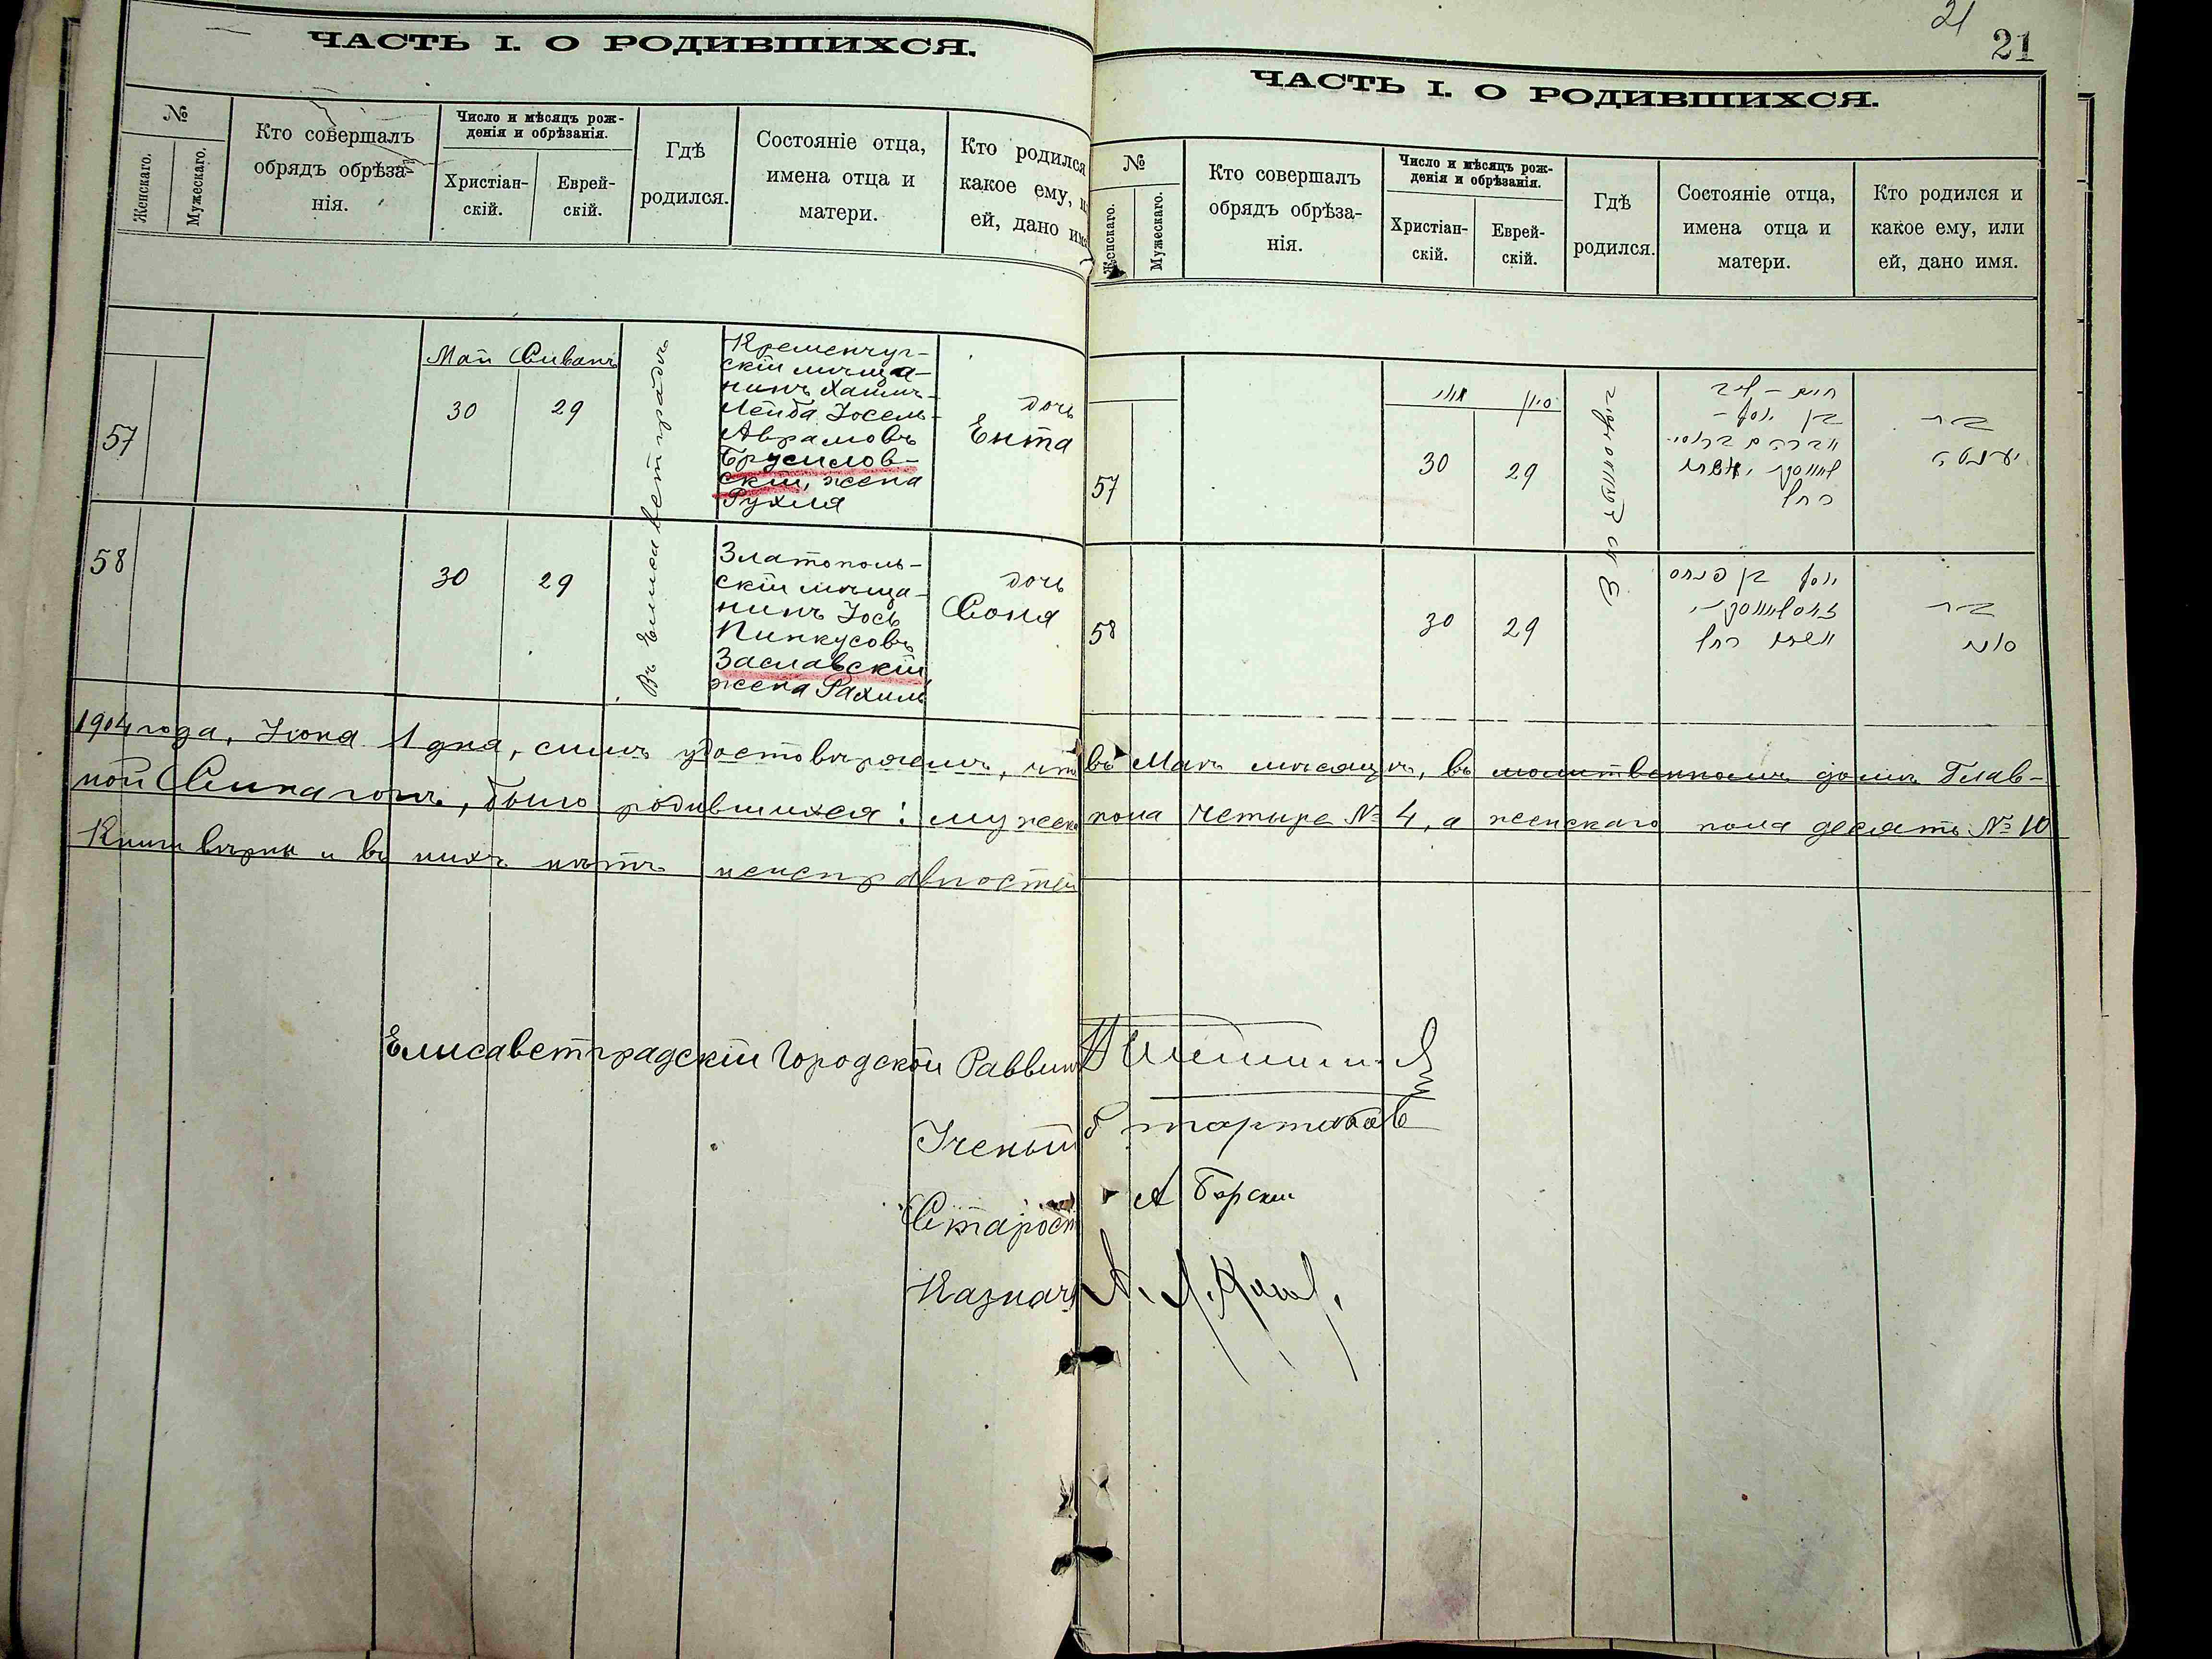 ЧАСТЬ I. О РОДИВШИХСЯ.
№
Женскаго.
Мужескаго.
Кто совершалъ
обрядъ обрѣза-
нія.
Число и мѣсяцъ рож-
денія и обрѣзанія.
Христіан-
скій.
Еврей-
скій.
Гдѣ
родился.
Состояніе отца,
имена отца и
матери.
Кто родился
какое ему, и
ей, дано имя
Май Сиванъ
57
30
29
Въ Елисаветградѣ
Кременчуг-
скій мѣща-
нинъ Хаимъ-
Лейба Іосель-
Аврамовъ
Брусилов-
скій, жена
Рухля
дочь
Ента
58
30
29
Златополь-
скій мѣща-
нинъ Іось
Пинкусовъ
Заславскій
жена Рахиль
дочь
Соня
21
21
ЧАСТЬ I. О РОДИВШИХСЯ.
№
Женскаго.
Мужескаго.
Кто совершалъ
обрядъ обрѣза-
нія.
Число и мѣсяцъ рож-
денія и обрѣзанія.
Христіан-
скій.
Еврей-
скій.
Гдѣ
родился.
Состояніе отца,
имена отца и
матери.
Кто родился и
какое ему, или
ей, дано имя.
מאי סיון
57
30
29
חיים - ליב
בן יוסף -
אברהם
רחל
בת
יענטה
58
30
29
יוסף בן פנחס
אשתו רחל
בת
סוניא
1904 года, Іюня 1 дня, симъ удостовѣряемъ, что въ Маѣ мѣсяцѣ, въ молитвенномъ домѣ Глав-
ной Синагогѣ, было родившихся: мужеска пола четыре № 4, а женскаго пола десять № 10
Книги вѣрны и въ нихъ нѣтъ неисправностей
Елисаветградскій Городской Раввинъ
Ученый
Старост
А Борскій
Казначе